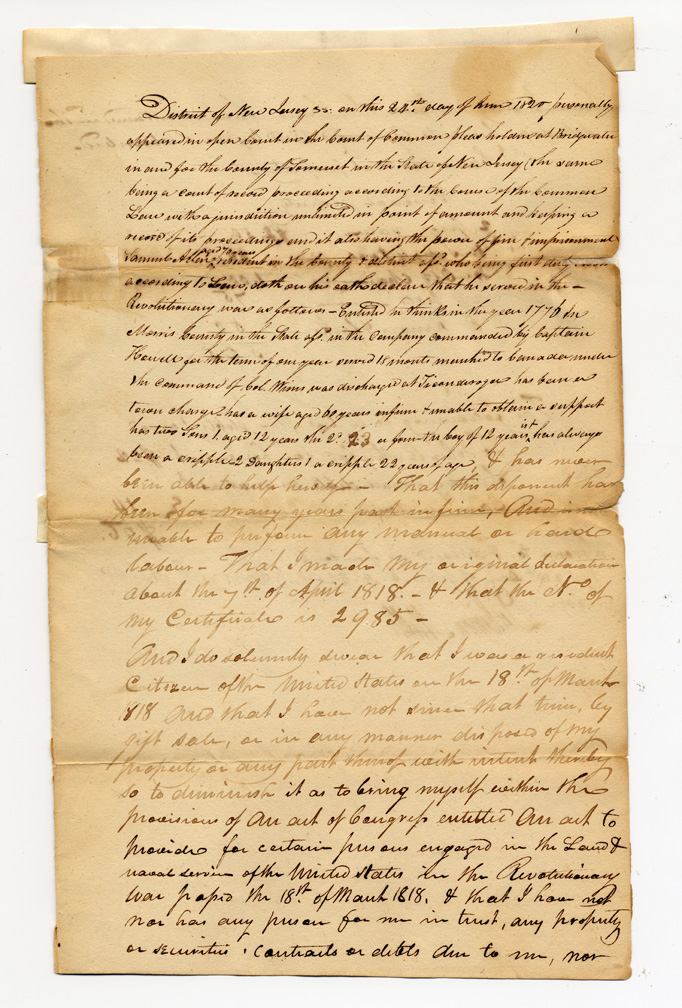 District of New Jersey ss. on this 24th day of June 1820 personally
appeared in open Court in the Court of Common pleas holden at Bridgwater
in and for the County of Somerset in the State of New Jersey (the same
being a court of record proceeding according to the Course of the Common
Law with a jurisdiction unlimited in point of amount and keeping a
record of its proceedings and it also having the power of fine & imprisonment
Samuel Allen aged 70 years resident in the County & district afs. who being first duly sworn
according to Law, doth on his oath declare that he served in the -
Revolutionary war as follows - Enlisted he thinks in the year 1776 in
Morris County in the State afs. in the company commanded by Captain
Howell for the term of one year served 18 months marched to Canada under
the command of Col. Wines, was discharged at Ticonderoga has been a
town charge, has a wife aged 60 years infirm & unable to obtain a support
has two Sons 1. aged 12 years the 2d. 23 or four the boy of 12 years is & has always
been a cripple 2 Daughters 1 a cripple 22 years of age, & has never
been able to help herself - That this deponent has
been for many years past infirm, And is
unable to perform any manual or hard
labour - That I made my original declaration
about the 7th. of April 1818. - & that the No. of
my Certificate is 2985 -
And I do solemnly swear that I was a resident
Citizen of the United States on the 18th. of March
1818 And that I have not since that time, by
gift sale, or in any manner disposed of my
property or any part thereof with intent thereby
so to diminish it as to bring myself within the
provisions of An act of Congress entitled An act to
provide for certain persons engaged in the Land &
naval service of the United States in the Revolutionary
War passed the 18th. of March 1818. & that I have not
nor has any person for me in trust, any property
or securities, contracts or debts due to me, nor